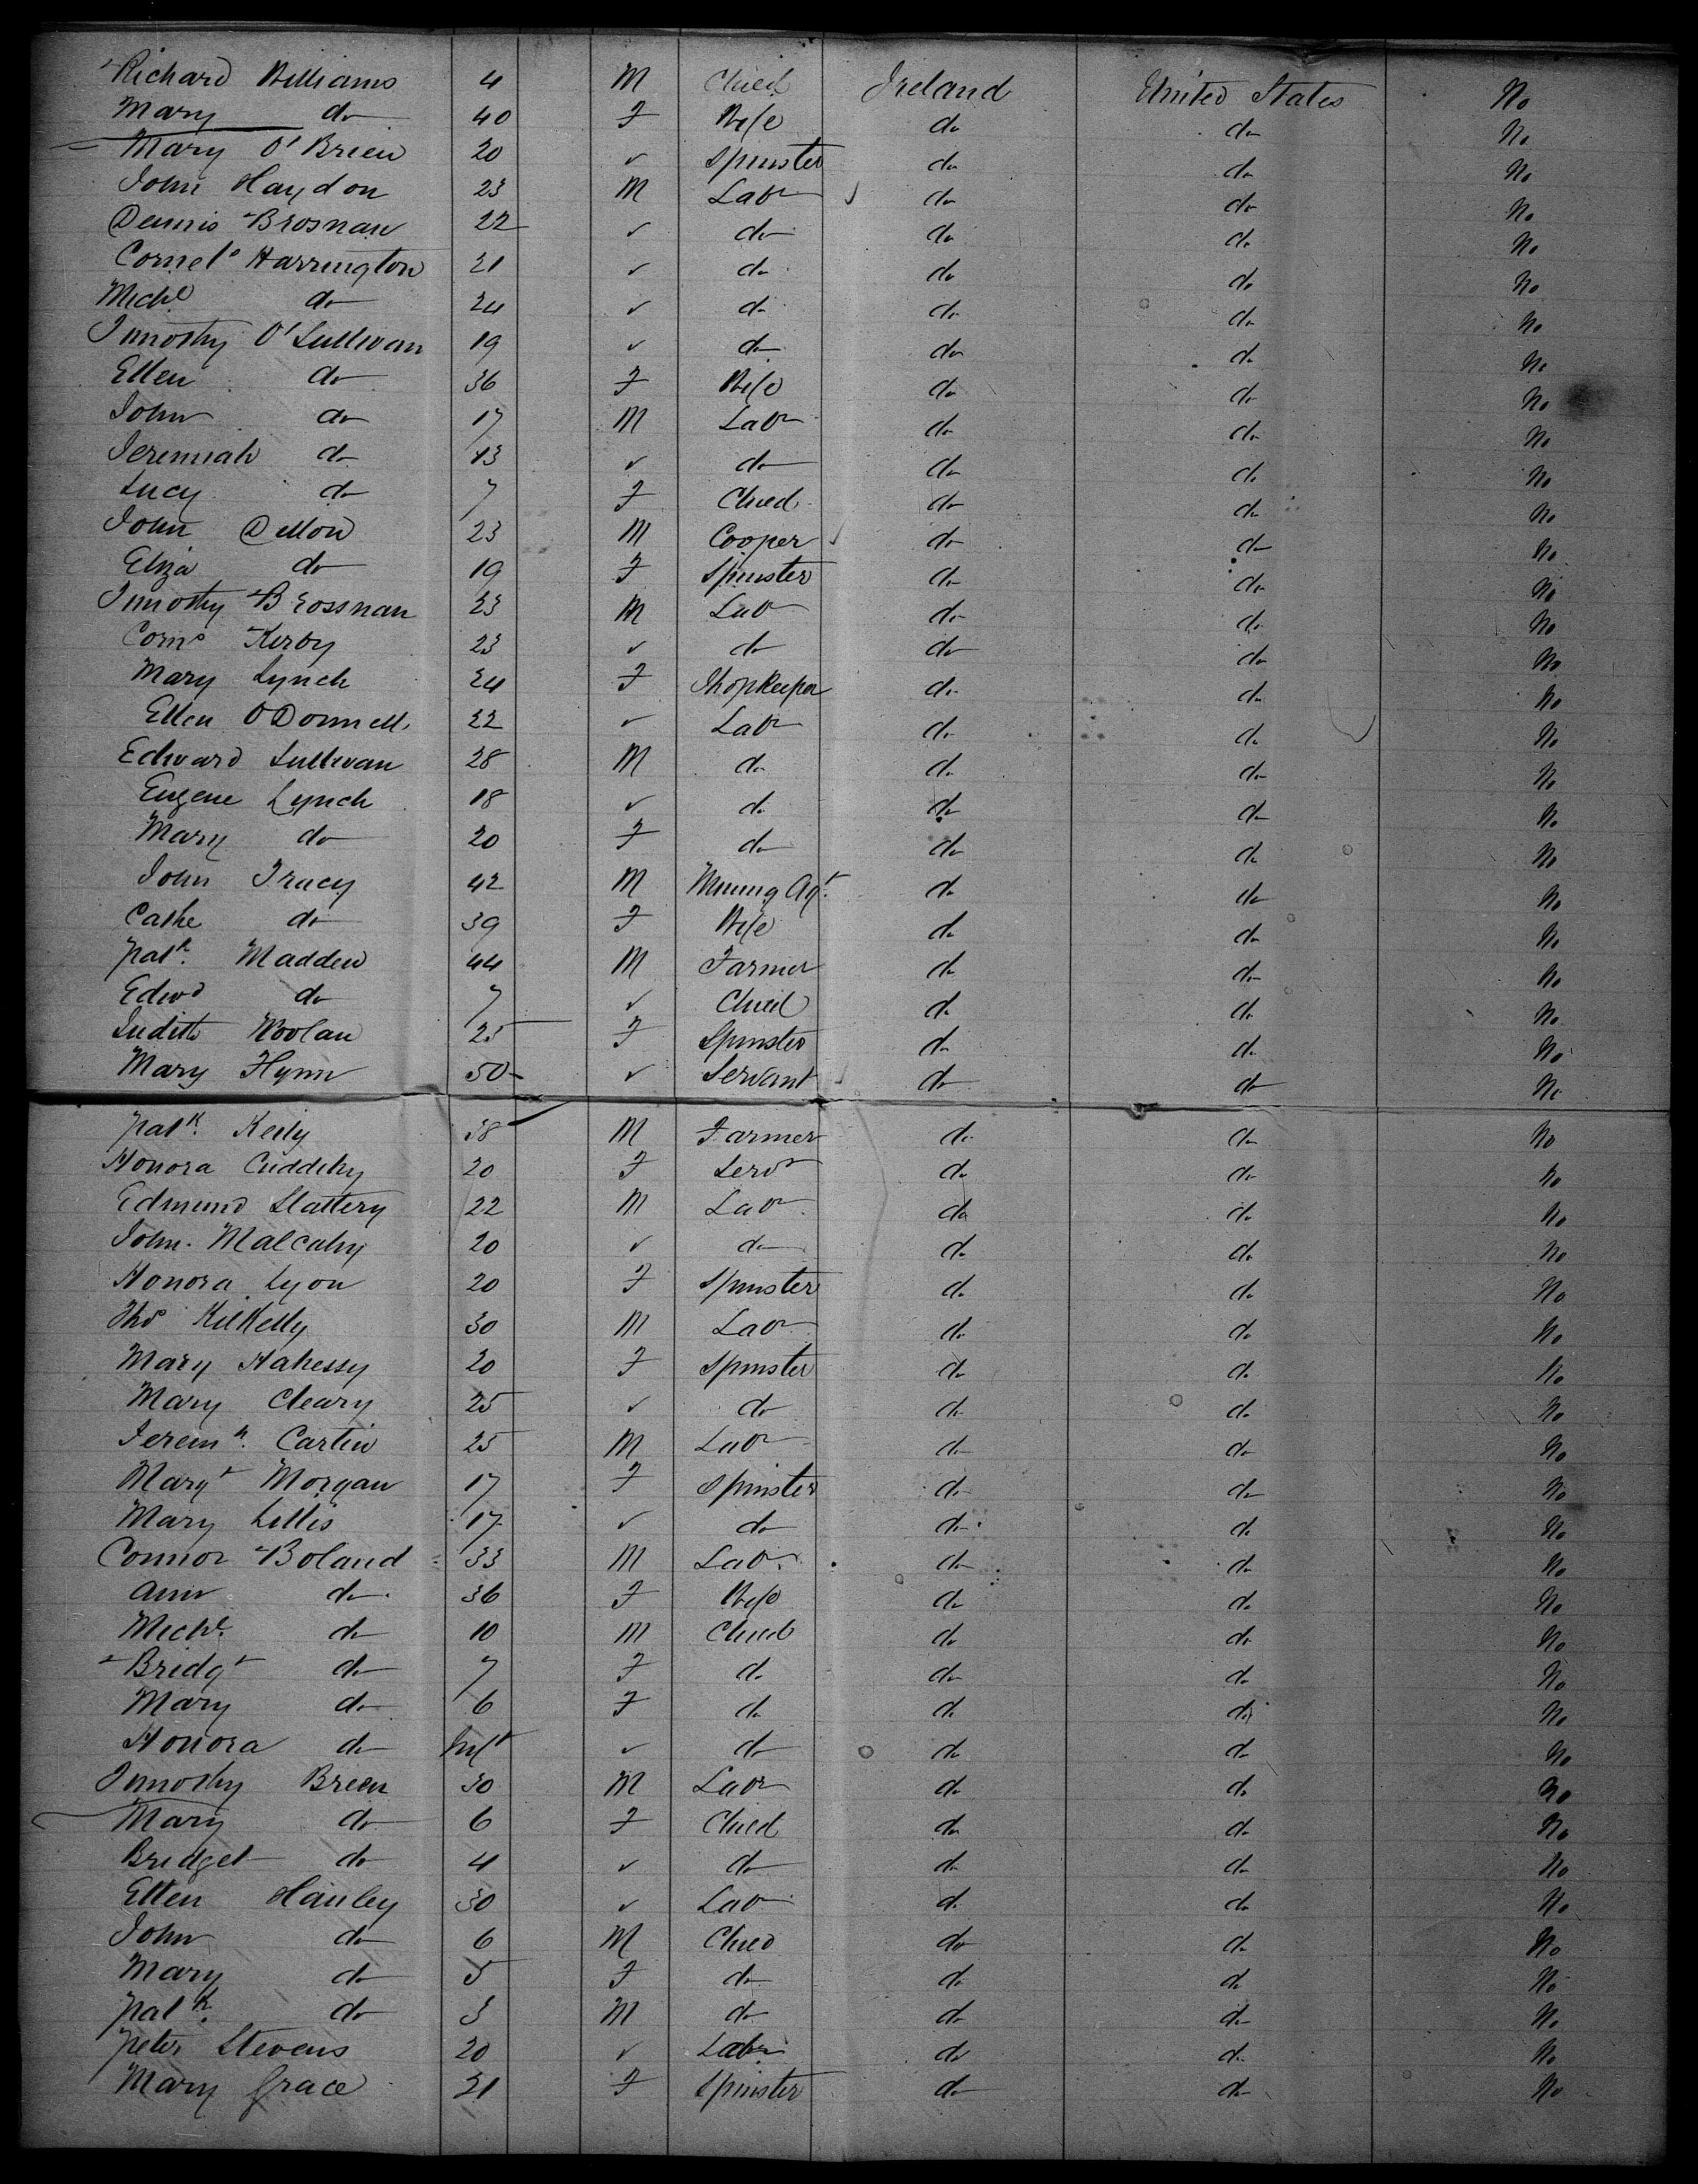 Richard Williams 4 M Child Ireland United States No
Mary do 40 F Wife do do No
Mary O'Brien 20 ✓ Spinster do do No
John Haydon 23 M Labr do do No
Dennis Brosnan 22 ✓ do do do No
Cornels Harrington 21 ✓ do do do No
Michl do 24 ✓ do do do No
Timothy O'Sullivan 19 ✓ do do do No
Ellen do 36 F Wife do do No
John do 17 M Labr do do No
Jeremiah do 13 ✓ do do do No
Lucy do 7 F Child do do No
John Dillon 23 M Cooper do do No
Eliza do 19 F Spinster do do No
Timothy Brossnan 23 M Labr do do No
Corns Kerby 23 ✓ do do do No
Mary Lynch 24 F Shopkeeper do do No
Ellen O'Donnell 22 ✓ Labr do do No
Edward Sullivan 28 M do do do No
Eugene Lynch 18 ✓ do do do No
Mary do 20 F do do do No
John Tracy 42 M Mining Agt. do do No
Cathe do 39 F Wife do do No
Patk. Madden 44 M Farmer do do No
Edwd do 7 ✓ Child do do No
Judith Woolan 25 F Spinster do do No
Mary Flynn 50 ✓ Servant do do No
Patk. Keily 38 M Farmer do do No
Honora Cuddihy 20 F Servt do do No
Edmund Slattery 22 M Labr do do No
John Malcahy 20 ✓ do do do No
Honora Lyon 20 F Spinster do do No
Thos Kilkelly 30 M Labr do do No
Mary Hahessy 20 F Spinster do do No
Mary Cleary 25 ✓ do do do No
Jeremh. Cartin 25 M Labr do do No
Margt Morgan 17 F Spinster do do No
Mary Lillis 17 ✓ do do do No
Connor Boland 33 M Labr do do No
Ann do 36 F Wife do do No
Michl. do 10 M Child do do No
Bridgt do 7 F do do do No
Mary do 6 F do do do No
Honora do Inft ✓ do do do No
Timothy Breen 30 M Labr do do No
Mary do 6 F Child do do No
Bridget do 4 ✓ do do do No
Ellen Hanley 30 ✓ Labr do do No
John do 6 M Child do do No
Mary do 5 F do do do No
Patk. do 3 M do do do No
Peter Stevens 20 ✓ Labr do do No
Mary Grace 21 F Spinster do do No